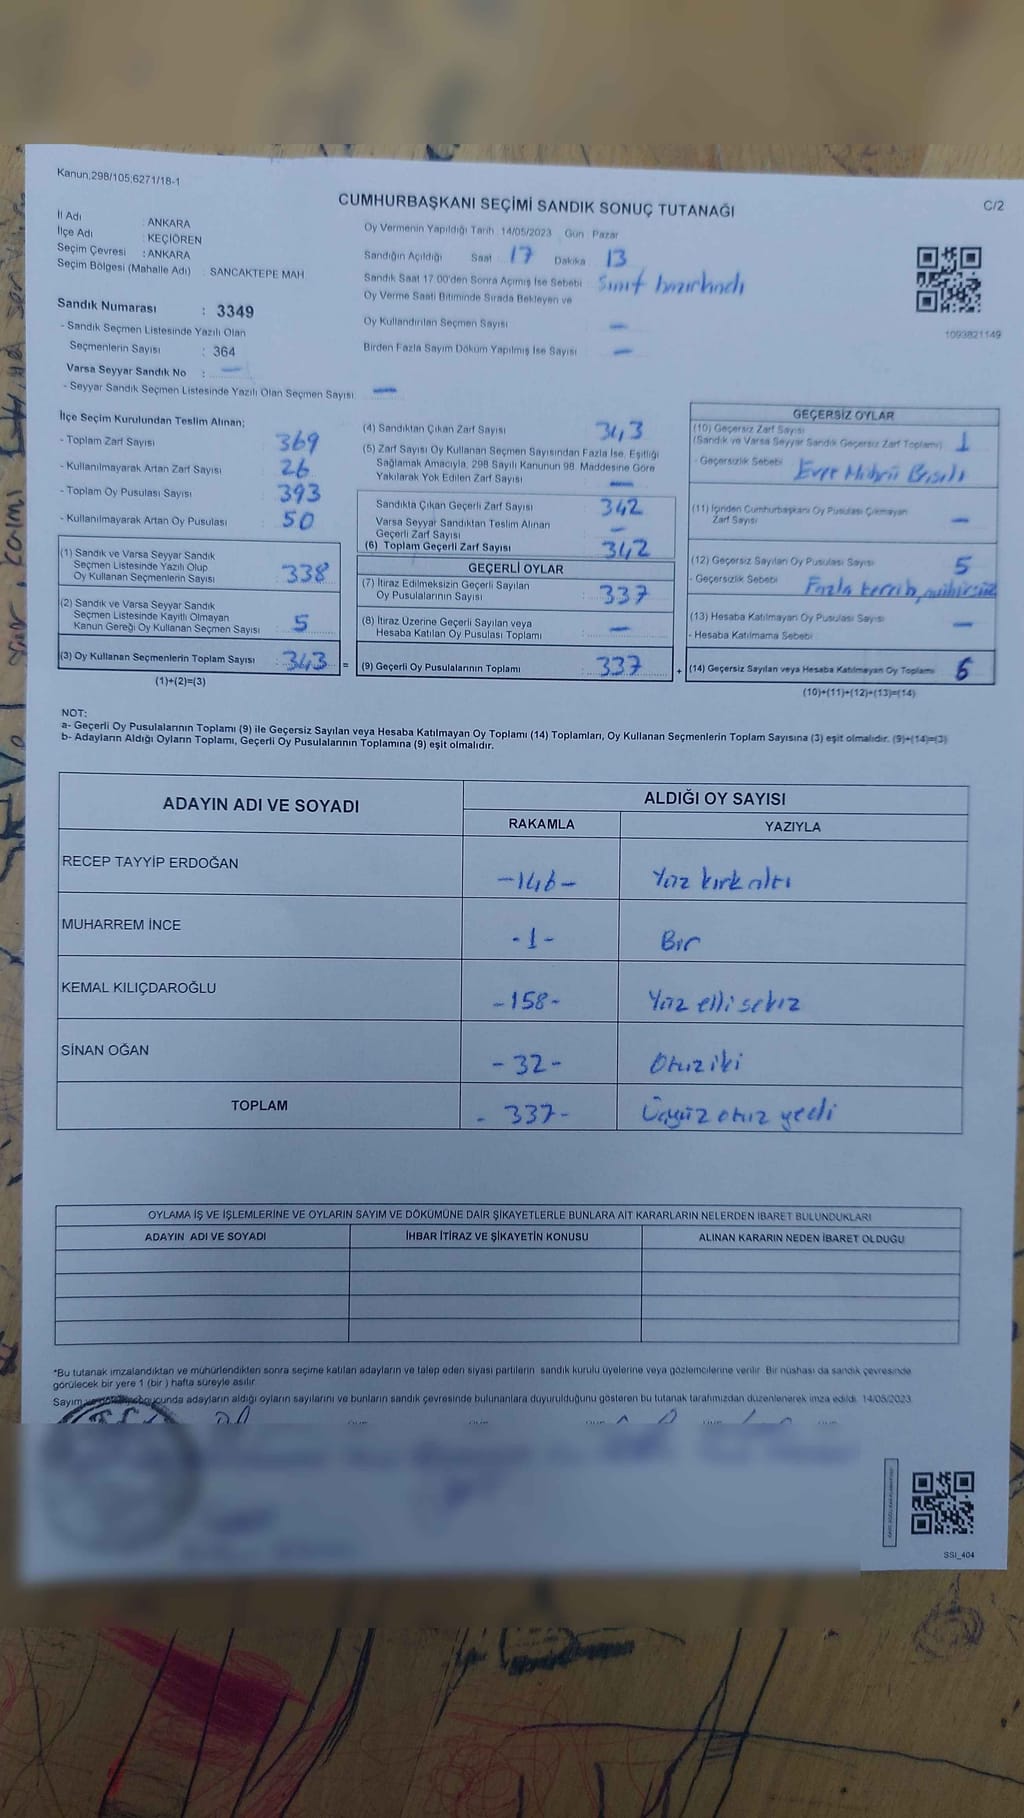 Kanun,298/105;6271/18-1
CUMHURBAŞKANI SEÇİMİ SANDIK SONUÇ TUTANAĞI
C/2
İl Adı : ANKARA
İlçe Adı : KEÇİÖREN
Seçim Çevresi : ANKARA
Seçim Bölgesi (Mahalle Adı) : SANCAKTEPE MAH.
Oy Vermenin Yapıldığı Tarih : 14/05/2023 Gün : Pazar
Sandığın Açıldığı Saat 17 Dakika 13
Sandık Saat 17.00'den Sonra Açımış İse Sebebi Sınıf hazırlandı
Oy Verme Saati Bitiminde Sırada Bekleyen ve
Oy Kullandırılan Seçmen Sayısı —
Birden Fazla Sayım Döküm Yapılmış İse Sayısı —
1093821149
Sandık Numarası : 3349
- Sandık Seçmen Listesinde Yazılı Olan
Seçmenlerin Sayısı : 364
Varsa Seyyar Sandık No : —
- Seyyar Sandık Seçmen Listesinde Yazılı Olan Seçmen Sayısı: —
İlçe Seçim Kurulundan Teslim Alınan;
- Toplam Zarf Sayısı 369
- Kullanılmayarak Artan Zarf Sayısı : 26
- Toplam Oy Pusulası Sayısı 393
- Kullanılmayarak Artan Oy Pusulası : 50
(1) Sandık ve Varsa Seyyar Sandık
Seçmen Listesinde Yazılı Olup
Oy Kullanan Seçmenlerin Sayısı : 338
(2) Sandık ve Varsa Seyyar Sandık
Seçmen Listesinde Kayıtlı Olmayan
Kanun Gereği Oy Kullanan Seçmen Sayısı : 5
(3) Oy Kullanan Seçmenlerin Toplam Sayısı : 343 =
(1)+(2)=(3)
(4) Sandıktan Çıkan Zarf Sayısı 343
(5) Zarf Sayısı Oy Kullanan Seçmen Sayısından Fazla İse, Eşitliği
Sağlamak Amacıyla, 298 Sayılı Kanunun 98. Maddesine Göre
Yakılarak Yok Edilen Zarf Sayısı : —
Sandıkta Çıkan Geçerli Zarf Sayısı 342
Varsa Seyyar Sandıktan Teslim Alınan
Geçerli Zarf Sayısı : —
(6) Toplam Geçerli Zarf Sayısı 342
GEÇERLİ OYLAR
(7) İtiraz Edilmeksizin Geçerli Sayılan
Oy Pusulalarının Sayısı : 337
(8) İtiraz Üzerine Geçerli Sayılan veya
Hesaba Katılan Oy Pusulası Toplamı : —
(9) Geçerli Oy Pusulalarının Toplamı : 337 +
GEÇERSİZ OYLAR
(10) Geçersiz Zarf Sayısı
(Sandık ve Varsa Seyyar Sandık Geçersiz Zarf Toplamı) : 1
- Geçersizlik Sebebi : Evet Mührü
(11) İçinden Cumhurbaşkanı Oy Pusulası Çıkmayan
Zarf Sayısı —
(12) Geçersiz Sayılan Oy Pusulası Sayısı 5
- Geçersizlik Sebebi Fazla tercih, mühürsüz
(13) Hesaba Katılmayan Oy Pusulası Sayısı —
- Hesaba Katılmama Sebebi
(14) Geçersiz Sayılan veya Hesaba Katılmayan Oy Toplamı 6
(10)+(11)+(12)+(13)=(14)
NOT:
a- Geçerli Oy Pusulalarının Toplamı (9) ile Geçersiz Sayılan veya Hesaba Katılmayan Oy Toplamı (14) Toplamları, Oy Kullanan Seçmenlerin Toplam Sayısına (3) eşit olmalıdır. (9)+(14)=(3)
b- Adayların Aldığı Oyların Toplamı, Geçerli Oy Pusulalarının Toplamına (9) eşit olmalıdır.
ADAYIN ADI VE SOYADI
ALDIĞI OY SAYISI
RAKAMLA YAZIYLA
RECEP TAYYİP ERDOĞAN —146— Yüz kırk altı
MUHARREM İNCE -1- Bir
KEMAL KILIÇDAROĞLU -158- Yüz elli sekiz
SİNAN OĞAN -32- Otuz iki
TOPLAM - 337- Üçyüz otuz yedi
OYLAMA İŞ VE İŞLEMLERİNE VE OYLARIN SAYIM VE DÖKÜMÜNE DAİR ŞİKAYETLERLE BUNLARA AİT KARARLARIN NELERDEN İBARET BULUNDUKLARI
ADAYIN ADI VE SOYADI İHBAR İTİRAZ VE ŞİKAYETİN KONUSU ALINAN KARARIN NEDEN İBARET OLDUĞU
*Bu tutanak imzalandıktan ve mühürlendikten sonra seçime katılan adayların ve talep eden siyasi partilerin sandık kurulu üyelerine veya gözlemcilerine verilir. Bir nüshası da sandık çevresinde
görülecek bir yere 1 (bir ) hafta süreyle asılır.
Sayım adayların aldığı oyların sayılarını ve bunların sandık çevresinde bulunanlara duyurulduğunu gösteren bu tutanak tarafımızdan düzenlenerek imza edildi. 14/05/2023
SSI_404